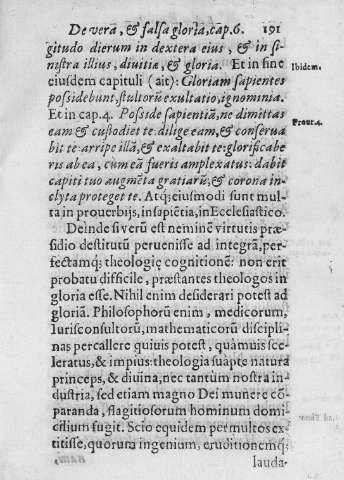 De vera, & falsa gloria, cap. 6. 191
gitudo dierum in dextera eius, & in si-
nistra illius, diuitiæ, & gloria. Et in fine
Ibidem.
eiusdem capituli (ait): Gloriam sapientes
possidebunt, stultorũ exultatio, ignominia.
Et in cap. 4. Posside sapientiã, ne dimittas
Prou. 4.
eam & custodiet te: dilige eam, & conserua
bit te: arripe illã, & exaltabit te: glorificabe
ris ab ea, cum eã fueris amplexatus: dabit
capiti tuo augmẽta gratiarũ, & corona in-
clyta proteget te. Atq; eiusmodi sunt mul
ta in prouerbijs, in sapiẽtia, in Ecclesiastico.
Deinde si verũ est neminẽ virtutis præ-
sidio destitutũ peruenisse ad integrã, per-
fectamq; theologię cognitionẽ: non erit
probatu difficile, præstantes theologos in
gloria esse. Nihil enim desiderari potest ad
gloriã. Philosophorũ enim, medicorum,
Iurisconsultorũ, mathematicorũ discipli-
nas percallere quiuis potest, quàmuis sce-
leratus, & impius: theologia suapte natura
princeps, & diuina, nec tantùm nostra in-
dustria, sed etiam magno Dei munere cõ-
paranda, flagitiosorum hominum domi-
cilium fugit. Scio equidem permultos ex-
titisse, quorum ingenium, eruditionemq;
lauda-